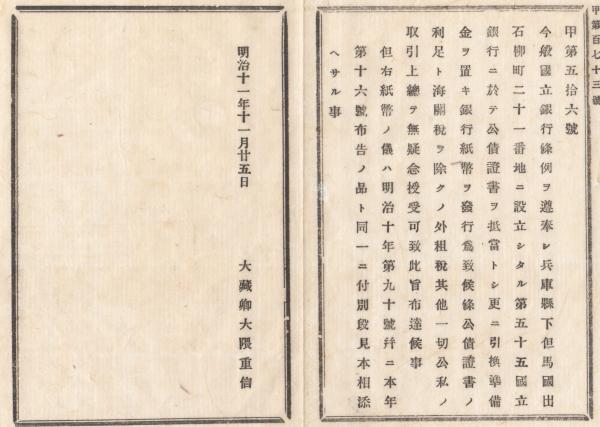 甲第百七十三號
甲第五拾六號
今般國立銀行條例ヲ遵奉シ兵庫縣下但馬國出
石柳町二十一番地ニ設立シタル第五十五國立
銀行ニ於テ公債證書ヲ抵當トシ更ニ引換準備
金ヲ置キ銀行紙幣ヲ發行爲致候條公債證書ノ
利足ト海關稅ヲ除クノ外租稅其他一切公私ノ
取引上總テ無疑念授受可致此旨布達候事
但右紙幣ノ儀ハ明治十年第九十號幷ニ本年
第十六號布告ノ品ト同一ニ付別段見本相添
ヘサル事
明治十一年十一月廿五日
大藏卿大隈重信